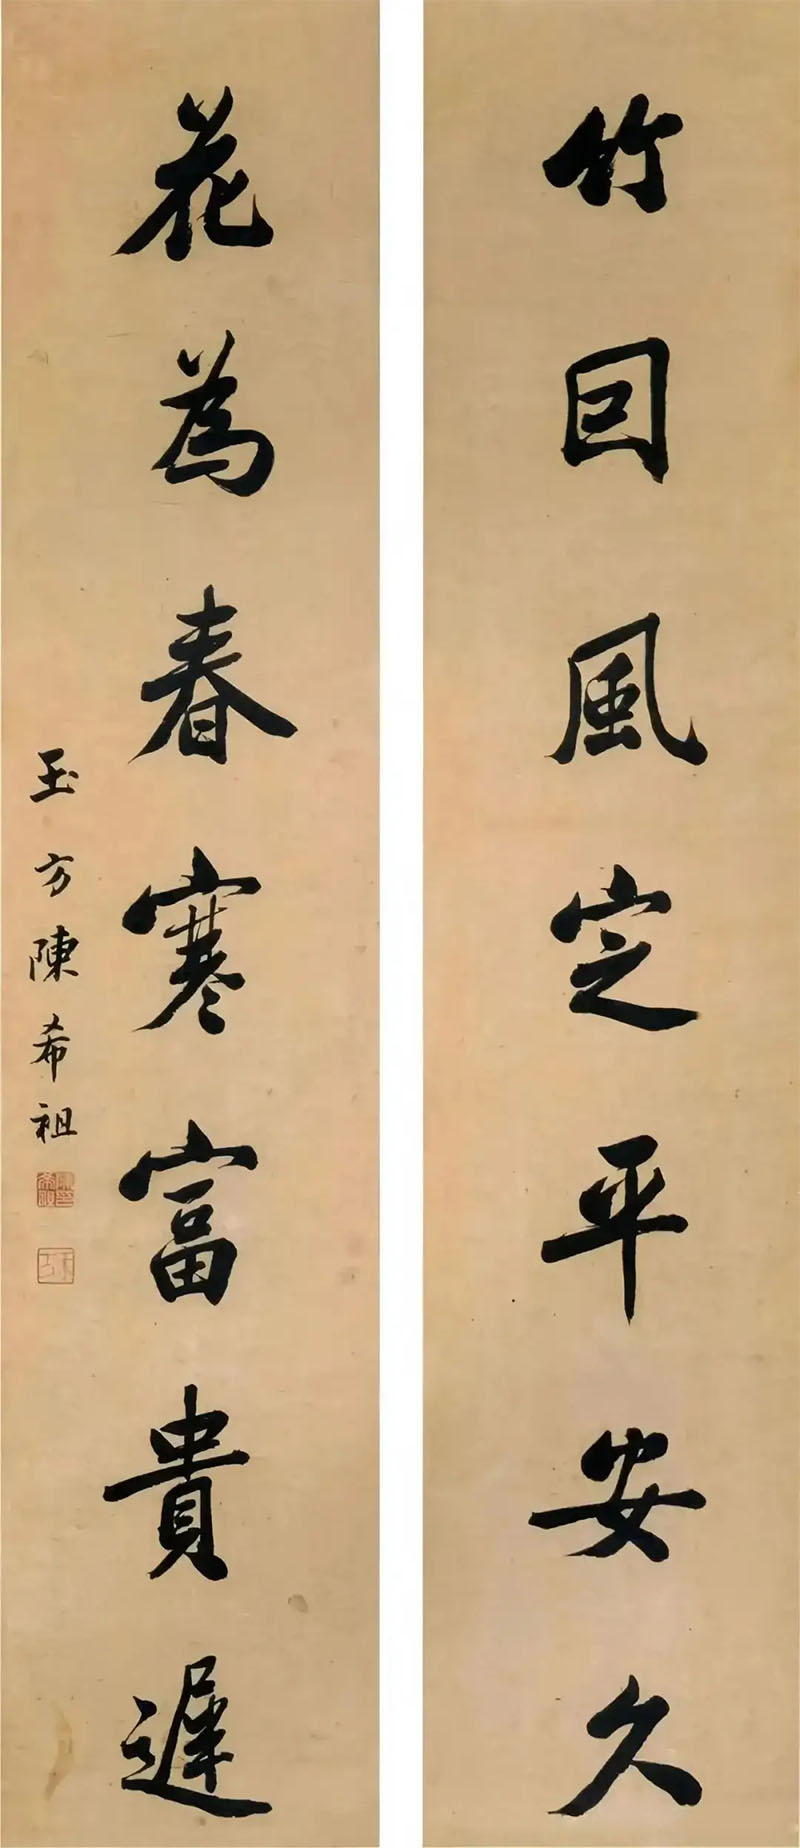 竹回風定平安久
花為春寒富貴遲
玉方陳希祖